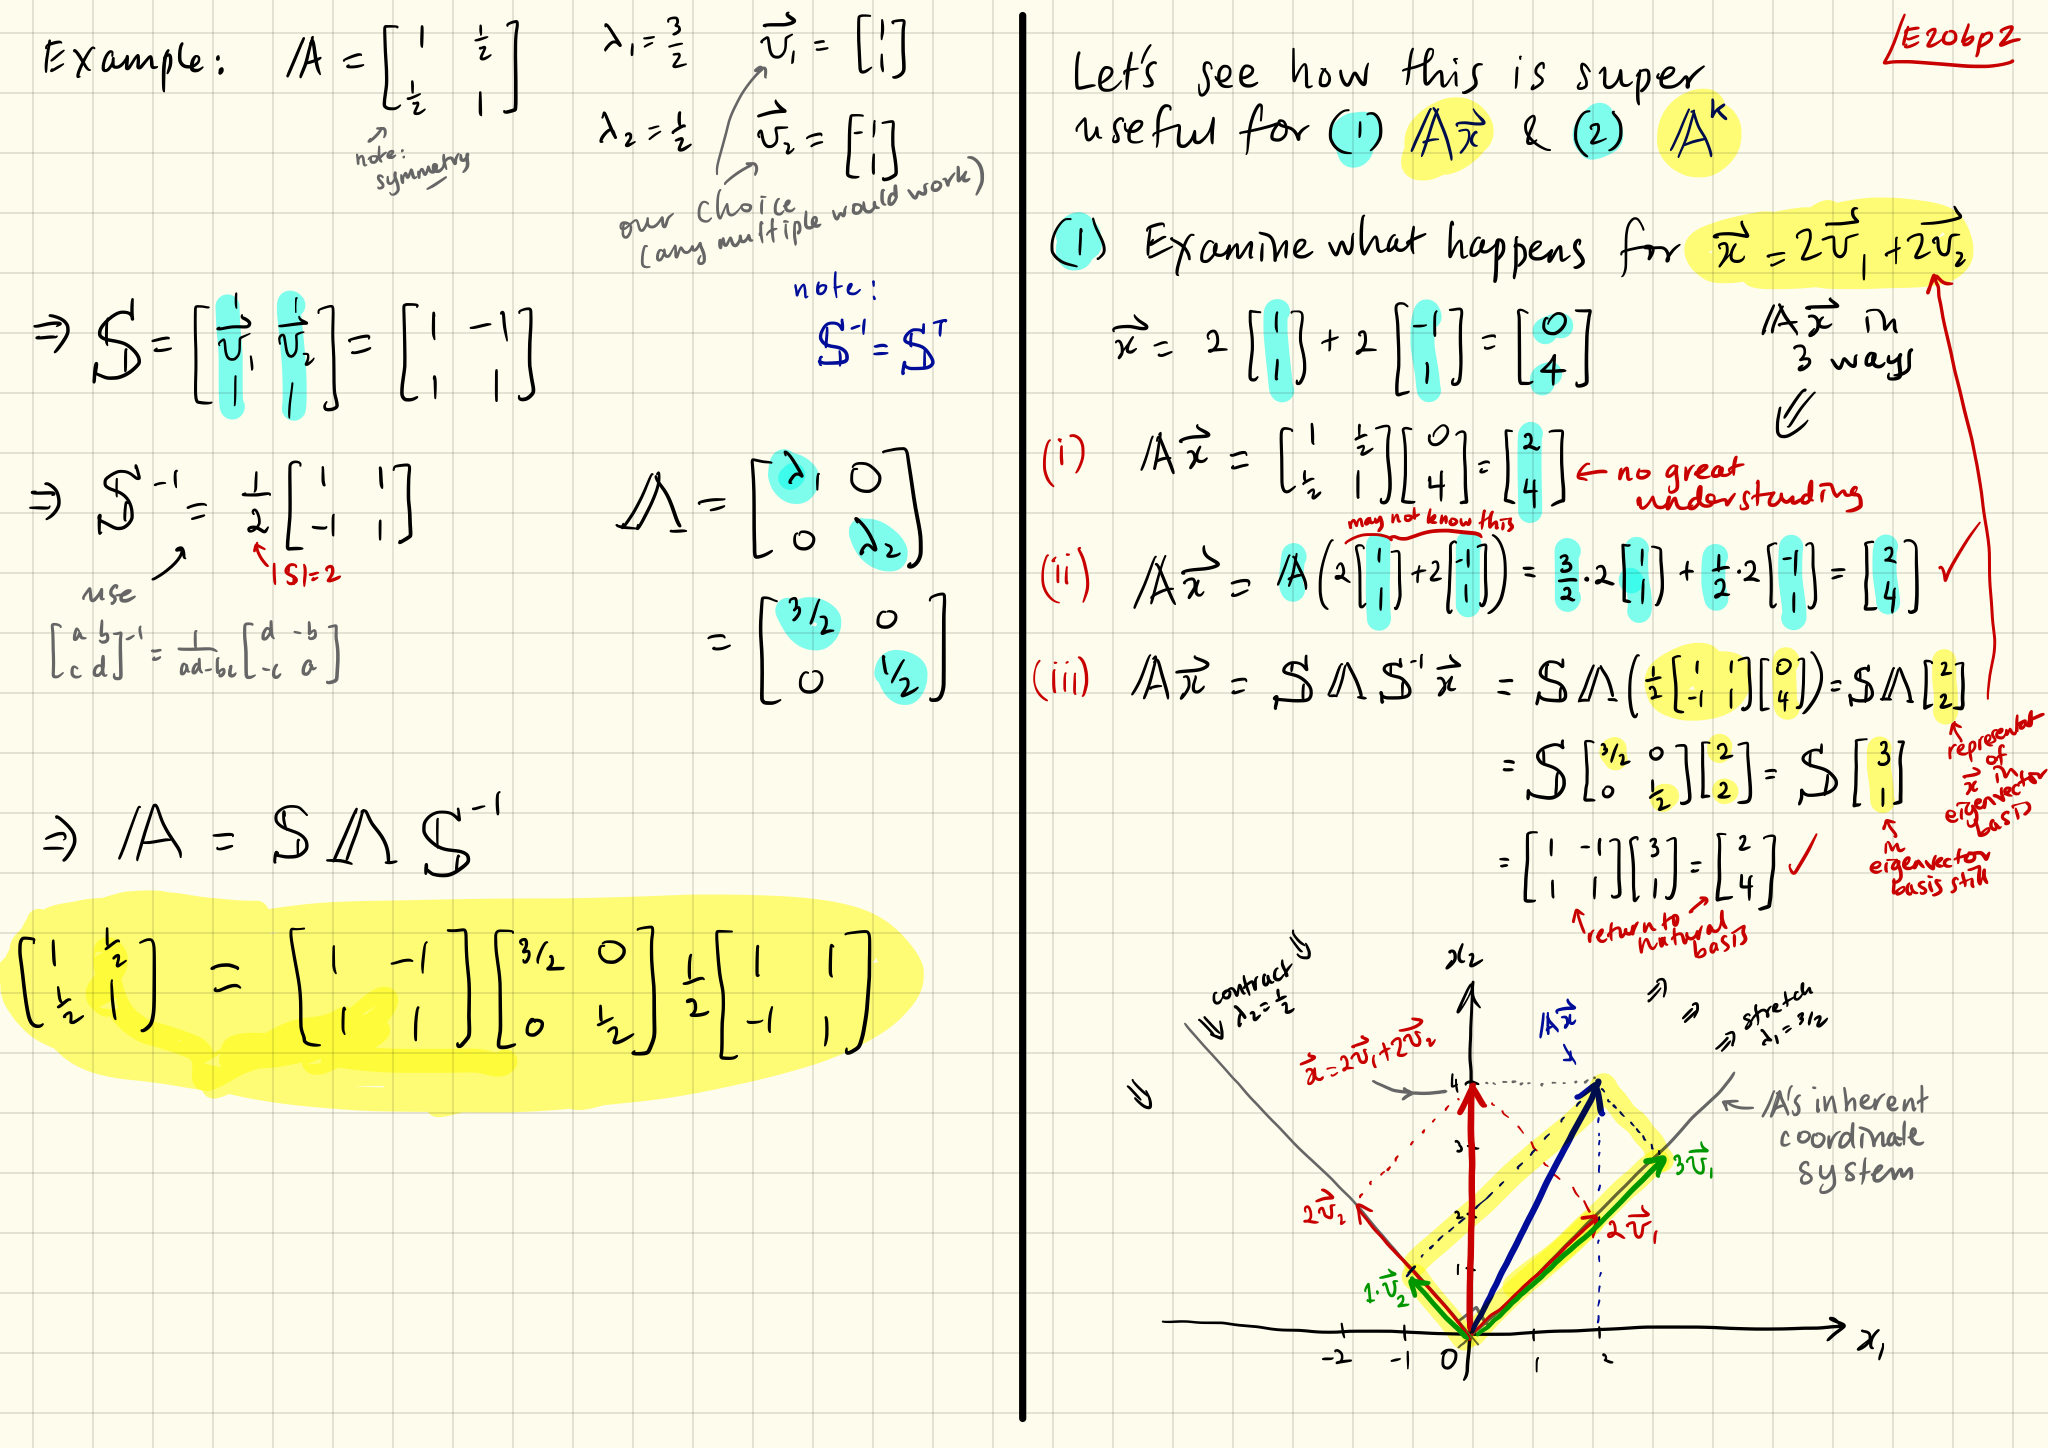 Example: 𝔸 = [1 1/2; 1/2 1] λ₁ = 3/2 v⃗₁ = [1; 1]
λ₂ = 1/2 v⃗₂ = [-1; 1]
note:
symmetry
our choice
(any multiple would work)
⇒ 𝕊 = [v⃗₁ v⃗₂] = [1 -1; 1 1]
note:
𝕊⁻¹ = 𝕊ᵀ
⇒ 𝕊⁻¹ = 1/2 [1 1; -1 1]
|S| = 2
use
[a b; c d]⁻¹ = 1/(ad-bc) [d -b; -c a]
Λ = [λ₁ 0; 0 λ₂]
= [3/2 0; 0 1/2]
⇒ 𝔸 = 𝕊 Λ 𝕊⁻¹
[1 1/2; 1/2 1] = [1 -1; 1 1] [3/2 0; 0 1/2] 1/2 [1 1; -1 1]
E206p2
Let's see how this is super
useful for (1) 𝔸x⃗ & (2) 𝔸ᵏ
(1) Examine what happens for x⃗ = 2v⃗₁ + 2v⃗₂
x⃗ = 2 [1; 1] + 2 [-1; 1] = [0; 4]
𝔸x⃗ in
3 ways
⇓
(i) 𝔸x⃗ = [1 1/2; 1/2 1] [0; 4] = [2; 4] ← no great
understanding
may not know this
(ii) 𝔸x⃗ = 𝔸 (2 [1; 1] + 2 [-1; 1]) = 3/2 · 2 [1; 1] + 1/2 · 2 [-1; 1] = [2; 4] ✓
(iii) 𝔸x⃗ = 𝕊 Λ 𝕊⁻¹ x⃗ = 𝕊 Λ (1/2 [1 1; -1 1] [0; 4]) = 𝕊 Λ [2; 2]
representat
of
x⃗ in
eigenvector
basis
= 𝕊 [3/2 0; 0 1/2] [2; 2] = 𝕊 [3; 1]
in
eigenvector
basis still
= [1 -1; 1 1] [3; 1] = [2; 4] ✓
return to
natural
basis
contract
λ₂ = 1/2
x₂
𝔸x⃗
stretch
λ₁ = 3/2
x⃗ = 2v⃗₁ + 2v⃗₂
4
𝔸's inherent
coordinate
system
3
3v⃗₁
2v⃗₂
2
2v⃗₁
1
1·v⃗₂
-2 -1 0 1 2
x₁